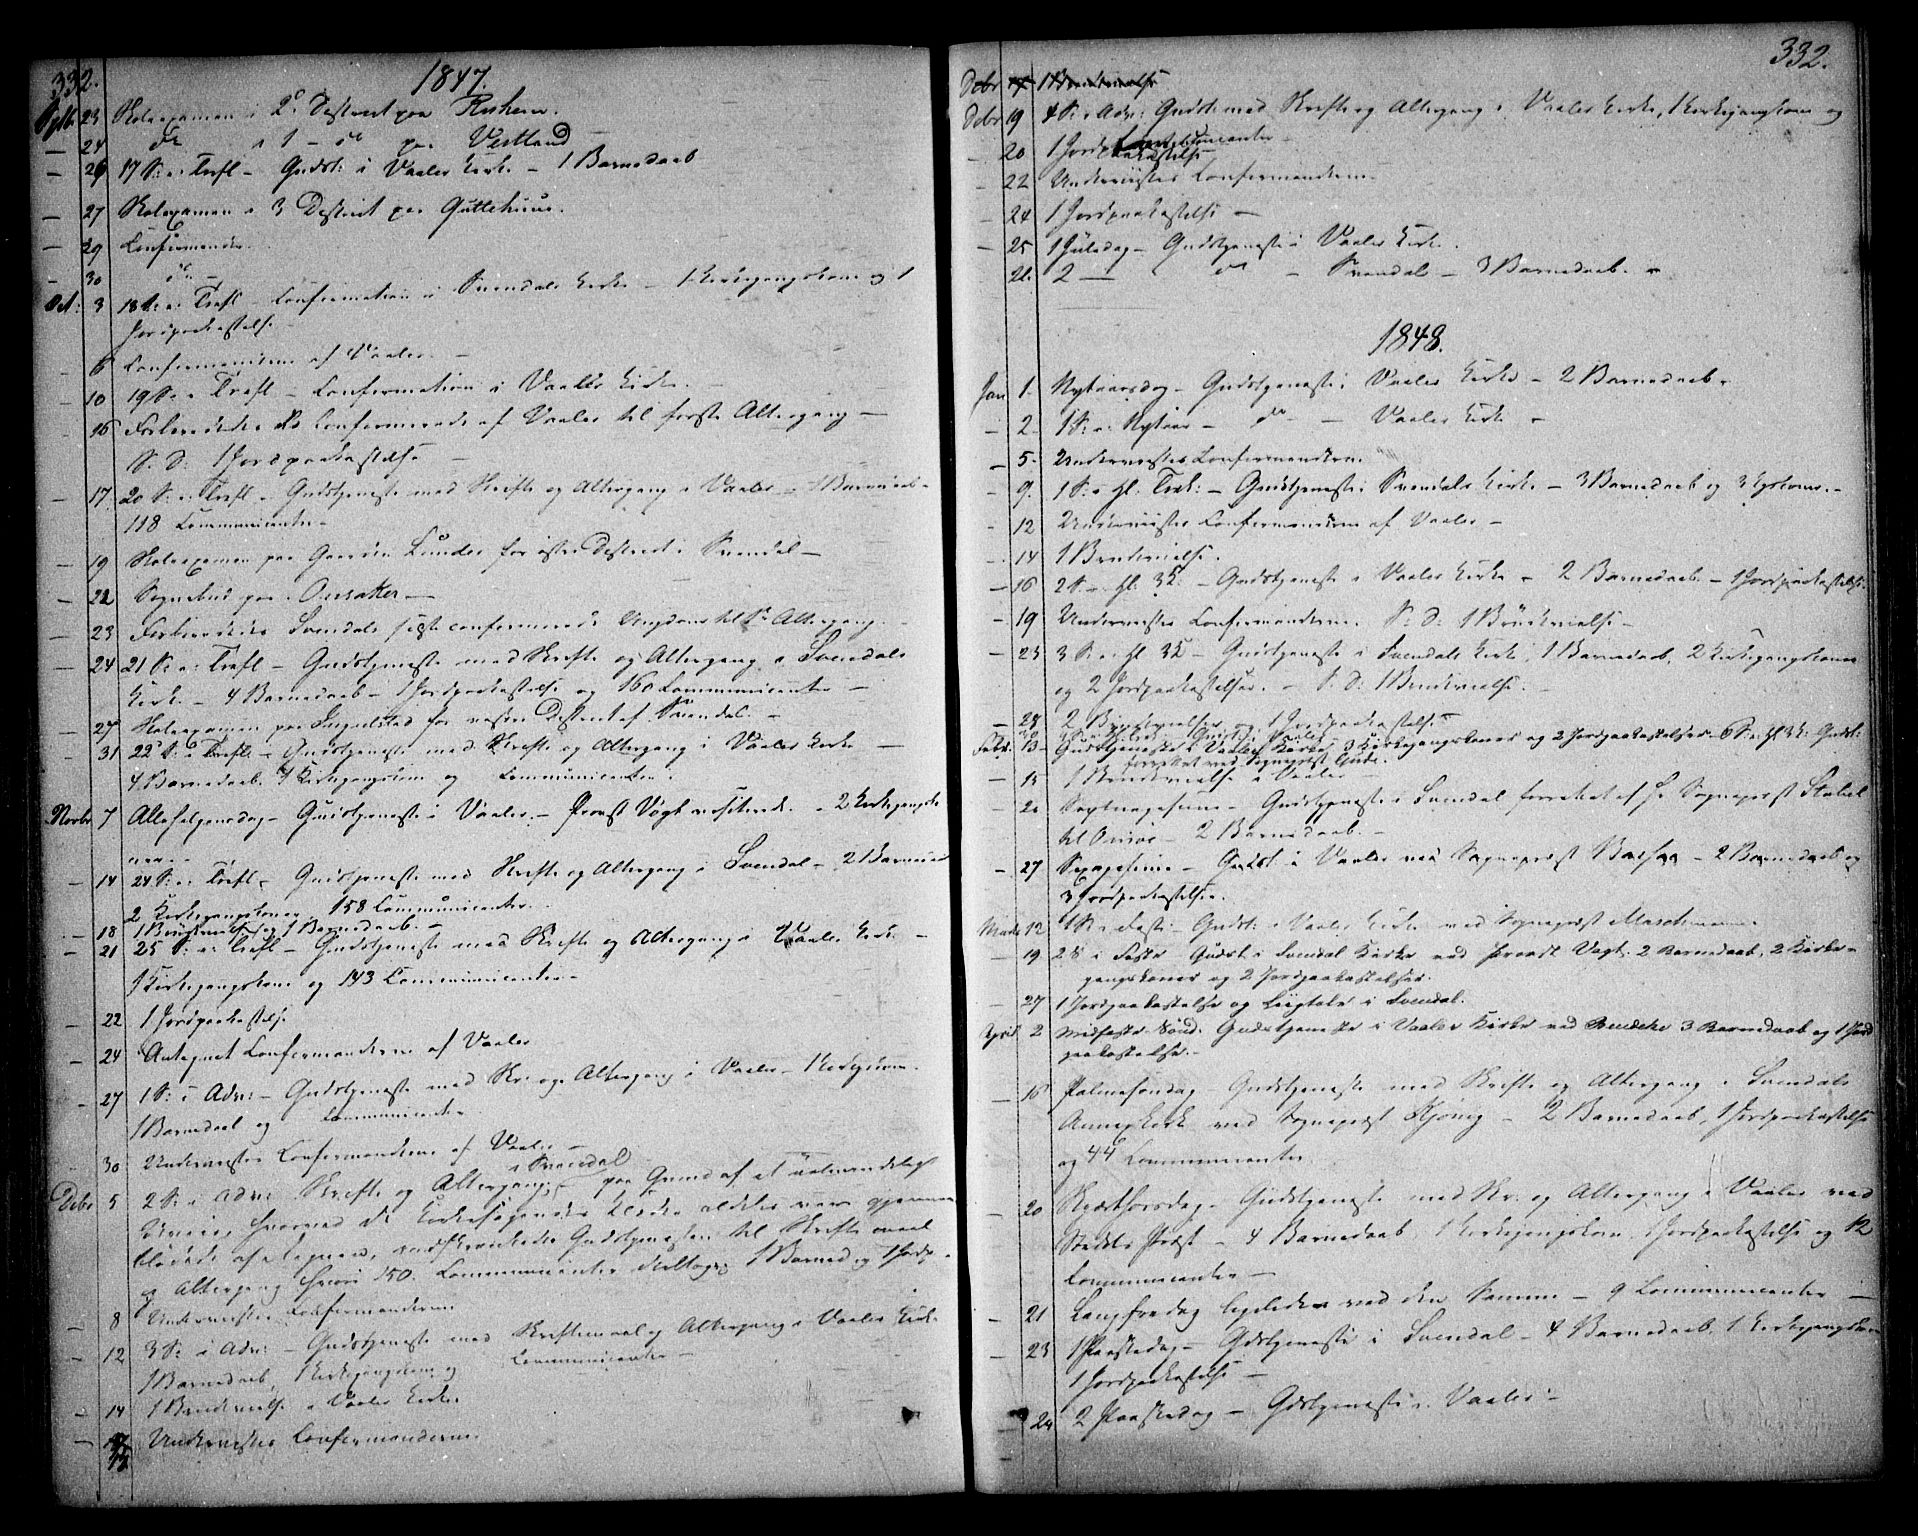 332.
1847.
Sptb 23 Skoleexamen i 2d District paa Rishem.
— 24 do i 1 - do paa Vestland
— 26 17 S: e: Trefl — Gudst: i Vaaler Kirke — 1 Barnedaab
— 27 Skoleexamen i 3 District paa Guttehuus.
— 29 Confirmander.
— 30 do —
Oct: 3 18 S: e: Trefl — Confirmation i Svendals Kirke — 1 Kirkegangskone og 1
Jordpaakastelse —
6 Confirmanderne af Vaaler. —
— 10 19 S: e: Trefl — Confirmation i Vaaler Kirke. —
— 16 Forberedede de Confirmerede af Vaaler til første Altergang —
S. D: 1 Jordpaakastelse —
— 17 20 S: e: Trefl — Gudstjeneste med Skrifte og Altergang i Vaaler — 1 Barnedaab —
118 Communicanter —
— 19 Skoleexamen paa Gaarden Lunder for østre District i Svendal —
— 22 Sognebud paa Onsaker —
— 23 Forberedede Svendals sidste confirmerede Ungdom til 1ste Altergang. —
— 24 21 S: e: Trefl — Gudstjeneste med Skrifte og Altergang i Svendals
Kirke — 4 Barnedaab — 1 Jordpaakastelse og 160 Communicanter —
— 27 Skoleexamen paa Ingulstad for vestre District af Svendal. —
— 31 22 S: e: Trefl — Gudstjeneste med Skrifte og Altergang i Vaaler Kirke —
4 Barnedaab. 1 Kirkegangskone og Communicanter.
Novbr 7 Allehelgensdag — Gudstjeneste i Vaaler. — Provst Vogt visiterede. — 2 Kirkegangsko
ner —
— 14 24 S: e: Trefl. — Gudstjeneste med Skrifte og Altergang i Svendal — 2 Barnedaab
2 Kirkegangskoner, 158 Communicanter.
— 18 1 Brudevielse og 1 Barnedaab. —
— 21 25 S: e: Trefl — Gudstjeneste med Skrifte og Altergang i Vaaler Kirke —
1 Kirkegangskone og 143 Communicanter —
— 22 1 Jordpaakastelse
— 24 Antegnet Confirmanderne af Vaaler
— 27 1 S: i Adv: — Gudstjeneste med Skr: og Altergang i Vaaler — 1 Kirkegkone.
1 Barnedaab og Communicanter
— 30 Underviste Confirmanderne af Vaaler —
Debr 5 2 S: i Adv: Skrifte og Altergang i Svendal — paa Grund af et ualmindeligt
Uveir, hvorved de Kirkesøgendes Klæder aldeles vare gjennem
blødede af Regnen, indskrænkedes Gudstjenesten til Skriftemaal
og Altergang hvori 150 Communicanter deeltoge, 1 Barned. og 1 Jordp. —
— 8 Underviste Confirmanderne
— 12 3 S: i Adv: — Gudstjeneste med Skriftemaal og Altergang i Vaaler Kirke
1 Barnedaab, 1 Kirkegangskone og Communicanter —
— 14 1 Brudevielse i Vaaler Kirke.
— 15 Underviste Confirmanderne.
332.
Debr 17 1 Brudevielse
Debr 19 4 S: i Adv: Gudst: med Skrifte og Altergang i Vaaler Kirke, 1 Kirkegangskone og
Communicanter —
— 20 1 Jordpaakastelse
— 22 Underviste Confirmanderne.
— 24 1 Jordpaakastelse —
— 25 1 Juledag — Gudstjeneste i Vaaler Kirke.
26. 2 — do — Svendal — 3 Barnedaab. —
1848.
Jan 1. Nytaarsdag — Gudstjeneste i Vaaler Kirke — 2 Barnedaab —
— 2. 1 S: e: Nytaar — do — Vaaler Kirke —
— 5. Underviste Confirmanderne.
— 9. 1 S: e: Hl. Trek: — Gudstjeneste i Svendals Kirke — 3 Barnedaab og 3 Kgkoner. —
— 12 Underviste Confirmanderne af Vaaler —
— 14 1 Brudevielse.
— 16 2 S. e. Hl. 3K: — Gudstjeneste i Vaaler Kirke — 2 Barnedaab. — 1 Jordpaakastelse.
— 19 Underviste Confirmanderne. S: D: 1 Brudevielse —
— 23 3 S: e: Hl 3K — Gudstjeneste i Svendals Kirke, 1 Barnedaab, 2 Kirkegangskoner
og 2 Jordpaakastelser. — S. D: 1 Brudevielse. —
— 28 2 Brudevielser og 1 Jordpaakastelse
Febr. 13 — Gudstjeneste i Vaaler Kirke, 3 Kirkegangskoner og 2 Jordpaakastelser 6 S. e. Hl 3K. Gudst:
forrettet ved Sognepræst Gude.
— 15 1 Brudevielse i Vaaler —
— 20 Septuagesima — Gudstjeneste i Svendal forrettet af Hr Sognepræst Stabel
til Onsøe — 2 Barnedaab. —
— 27 Sexagesima — Gudst: i Vaaler ved Sognepræst — 2 Barnedaab og
3 Jordpaakastelser.
Marts 12 1 S: i Faste: — Gudst: i Vaaler Kirke ved Sognepræst Maschmann —
— 19 2 S i Faste Gudst. i Svendal Kirke ved Provst Vogt. 2 Barnedaab, 2 Kirke-
gangskoner og 2 Jordpaakastelser.
— 27 1 Jordpaakastelse og Liigtale i Svendal.
April 2 Midfaste Sønd. Gudstjeneste i Vaaler Kirke ved 3 Barnedaab og 1 Jord
paakastelse. —
— 16 Palmesøndag Gudstjeneste med Skrifte og Altergang i Svendals
Annexkirk ved Sognepræst — 2 Barnedaab, 1 Jordpaakastelse
og 44 Communicanter
— 20 Skjærthorsdag — Gudstjeneste med Skr: og Altergang i Vaaler ved
Stedets Præst — 4 Barnedaab 1 Kirkegangskone, 1 Jordpaakastelse og 12
Communicanter —
— 21 Langfredag ligeledes ved den Samme — 9 Communicanter —
— 23 1 Paaskedag — Gdstjeneste i Svendal — 4 Barnedaab 1 Kirkegangskone
1 Jordpaakastelse —
24 2 Paaskedag — Gdstjeneste i Vaaler —